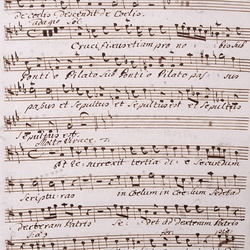 de coelis. descendit de Coelis.
adagio Sol:
Crucifixus etiam pro no bis sub
Pontio Pilato sub Pontio Pilato pas sus
passus et Sepultus et Sepultus est et Sepultus
Sepultus est.
Molto Vivace
at Resurrexit tertia die Secundum
Scripturas in coelum in Coelum Sedet ad
dexteram Patris Se det ad Dexteram Patris